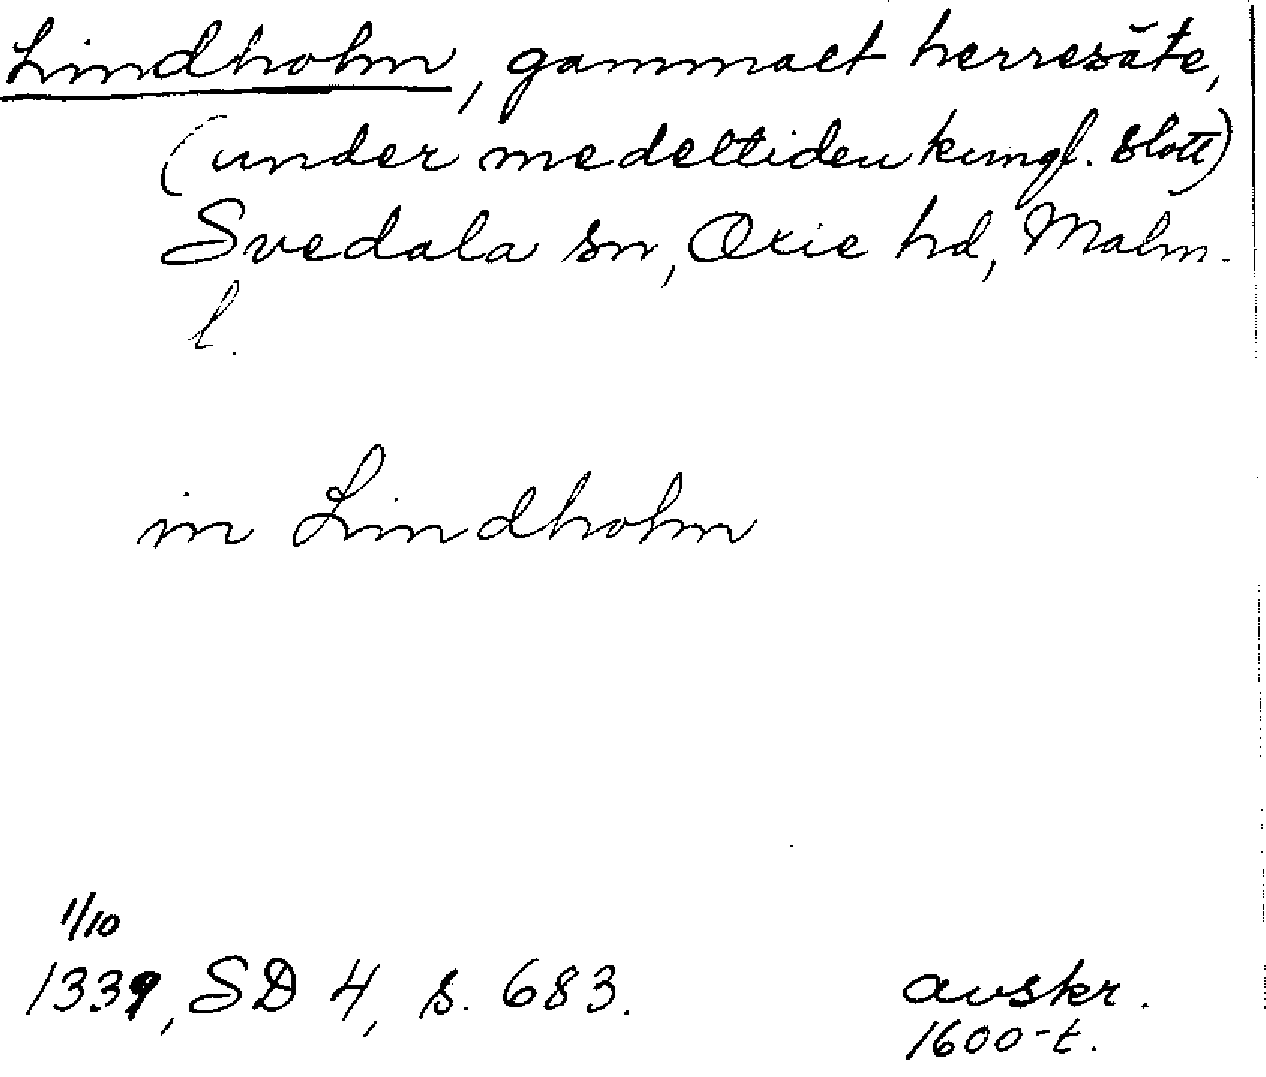 Lindholm, gammalt herresäte,
(under medeltiden kungl. slott)
Svedala sn, Oxie hd, Malm.
l.
in Lindholm
1/10
1339, SD 4, s. 683.
avskr.
1600-t.